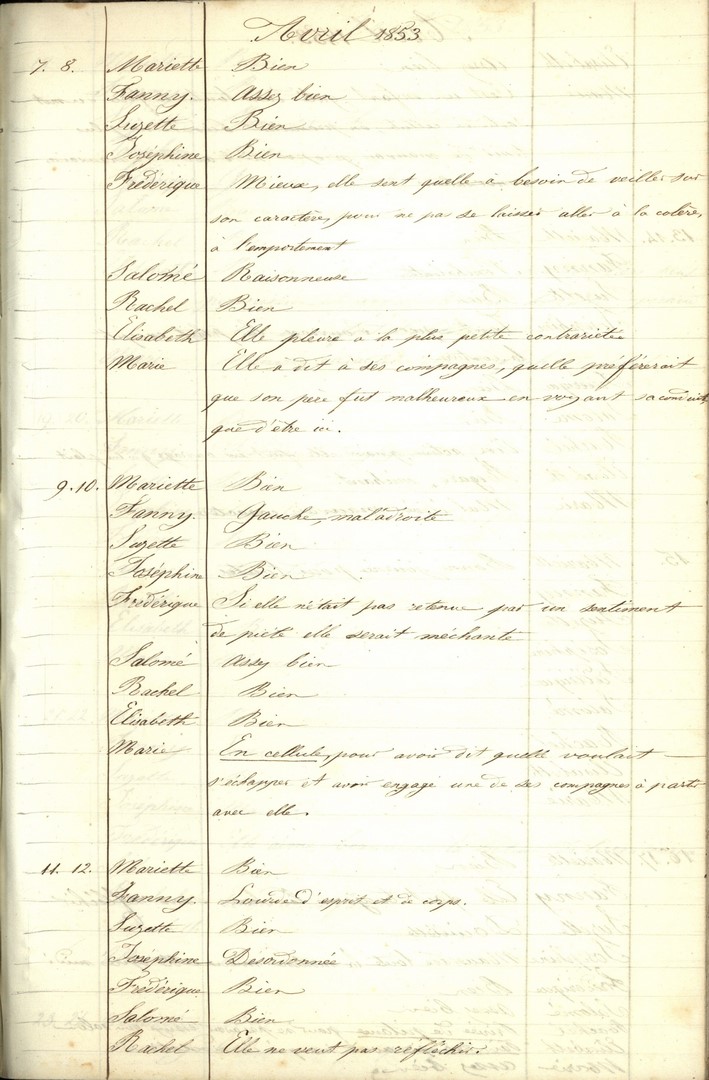 Avril 1853
7. 8. Mariette Bien
Fanny. Assez bien
Suzette Bien
Joséphine Bien
Frédérique Mieux, elle sent quelle a besoin de veiller sur
son caractère, pour ne pas se laisser aller à la colère,
à l'emportement
Salomé Raisonneuse
Rachel Bien
Elisabeth Elle pleure à la plus petite contrariétée
Marie Elle a dit à ses compagnes, quelle préférerait
que son père fut malheureux en voyant sa conduite,
que d'être ici.
9. 10. Mariette Bien
Fanny. Gauche, mal'adroite
Suzette Bien
Joséphine Bien
Frédérique Si elle n'était pas retenue par un sentiment
de piété elle serait méchante
Salomé Assez bien
Rachel Bien
Elisabeth Bien
Marie En cellule, pour avoir dit quelle voulait
s'échapper et avoir engagé une de ses compagnes à partir
avec elle.
11. 12. Mariette Bien
Fanny. Lourde d'esprit et de corps.
Suzette Bien
Joséphine Desordonnée
Frédérique Bien
Salomé Bien
Rachel Elle ne veut pas réfléchir.